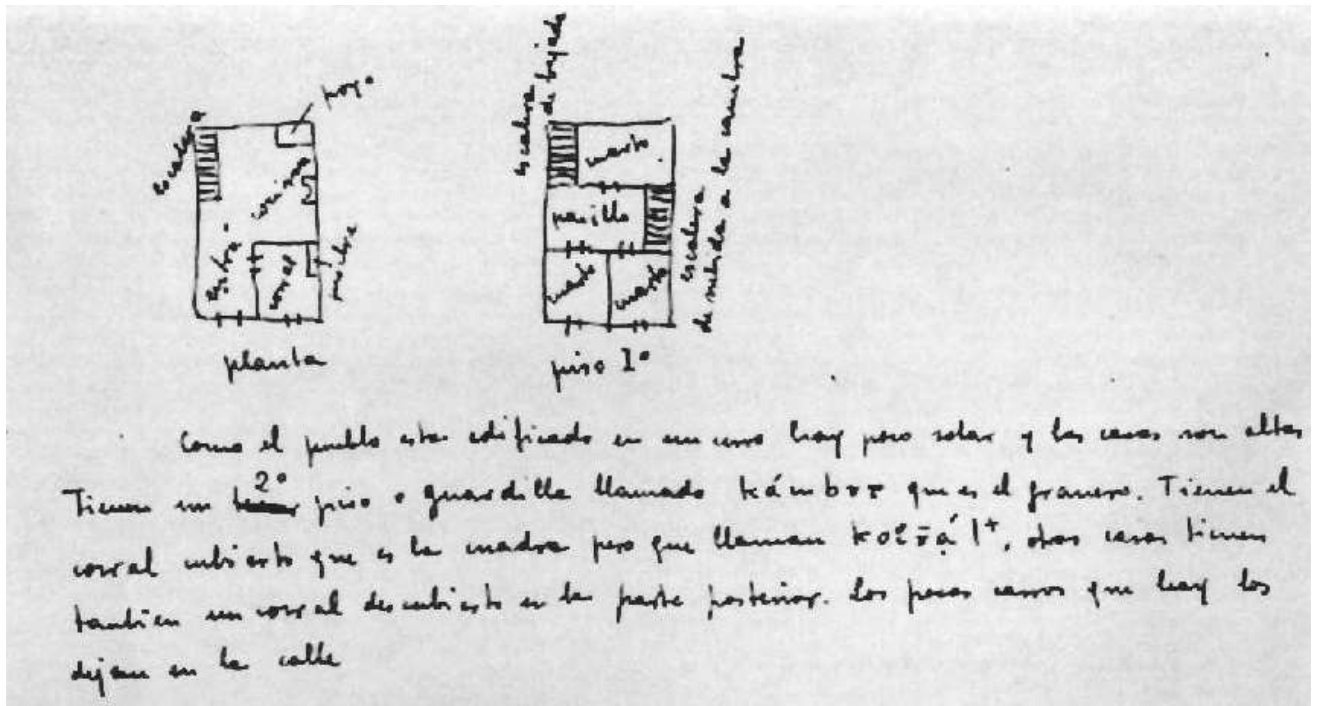 escalera
poyo
cocina
entra-
corral
pesebre
planta
escalera
de bajada
cuarto
pasillo
escalera
de subida a la cambra
cuarto
cuarto
piso 1º
Como el pueblo esta edificado en un cerro hay poco solar y las casas son altas
Tienen un 2º piso o guardilla llamado que es el granero. Tienen el
corral cubierto que es la cuadra pero que llaman otras casas tienen
tambien un corral descubierto en la parte posterior. Los pocos carros que hay los
dejan en la calle